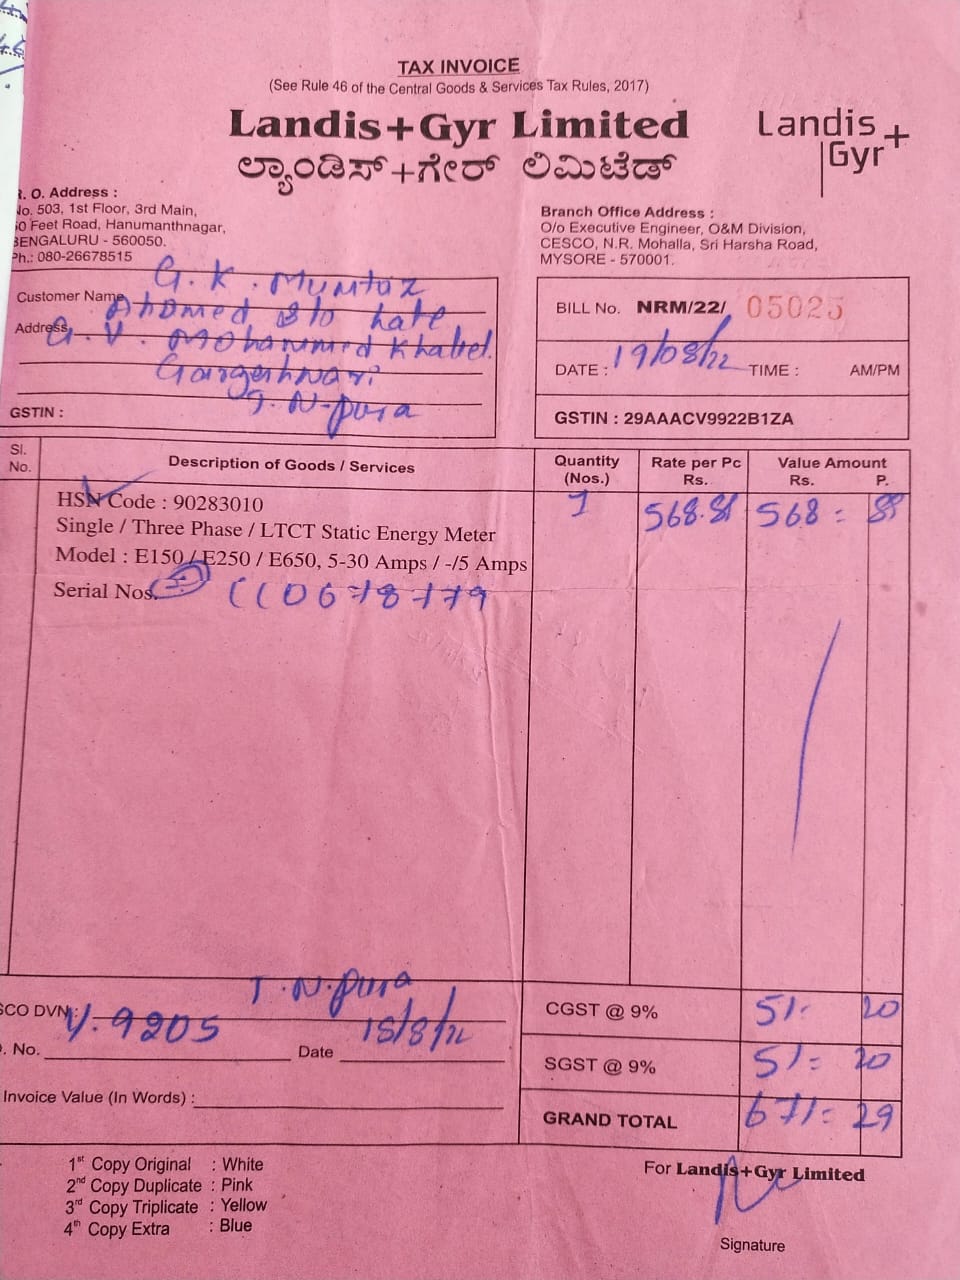 TAX INVOICE
(See Rule 46 of the Central Goods & Services Tax Rules, 2017)
Landis+Gyr Limited
ಲ್ಯಾಂಡಿಸ್+ಗೇರ್ ಲಿಮಿಟೆಡ್
Landis
Gyr+
R. O. Address :
No. 503, 1st Floor, 3rd Main,
50 Feet Road, Hanumanthnagar,
BENGALURU - 560050.
Ph.: 080-26678515
Branch Office Address :
O/o Executive Engineer, O&M Division,
CESCO, N.R. Mohalla, Sri Harsha Road,
MYSORE - 570001.
Customer Name G. K. Mumtaz
Ahamed S/o Late
Address G. V. Mohammed Khaleel.
Gargeshwari
T. N-pura
GSTIN :
BILL No. NRM/22/ 05025
DATE : 19/08/22 TIME : AM/PM
GSTIN : 29AAACV9922B1ZA
Sl. No. Description of Goods / Services Quantity (Nos.) Rate per Pc Rs. Value Amount Rs. P.
HSN Code : 90283010 1 568.81 568 =
Single / Three Phase / LTCT Static Energy Meter
Model : E150 / E250 / E650, 5-30 Amps / -/5 Amps
Serial Nos.
T. N. pura
SCO DVN :
V. 9205 15/8/22
. No. Date
Invoice Value (In Words) :
CGST @ 9% 51- 20
SGST @ 9% 51= 20
GRAND TOTAL 671= 29
1st Copy Original : White
2nd Copy Duplicate : Pink
3rd Copy Triplicate : Yellow
4th Copy Extra : Blue
For Landis+Gyr Limited
Signature